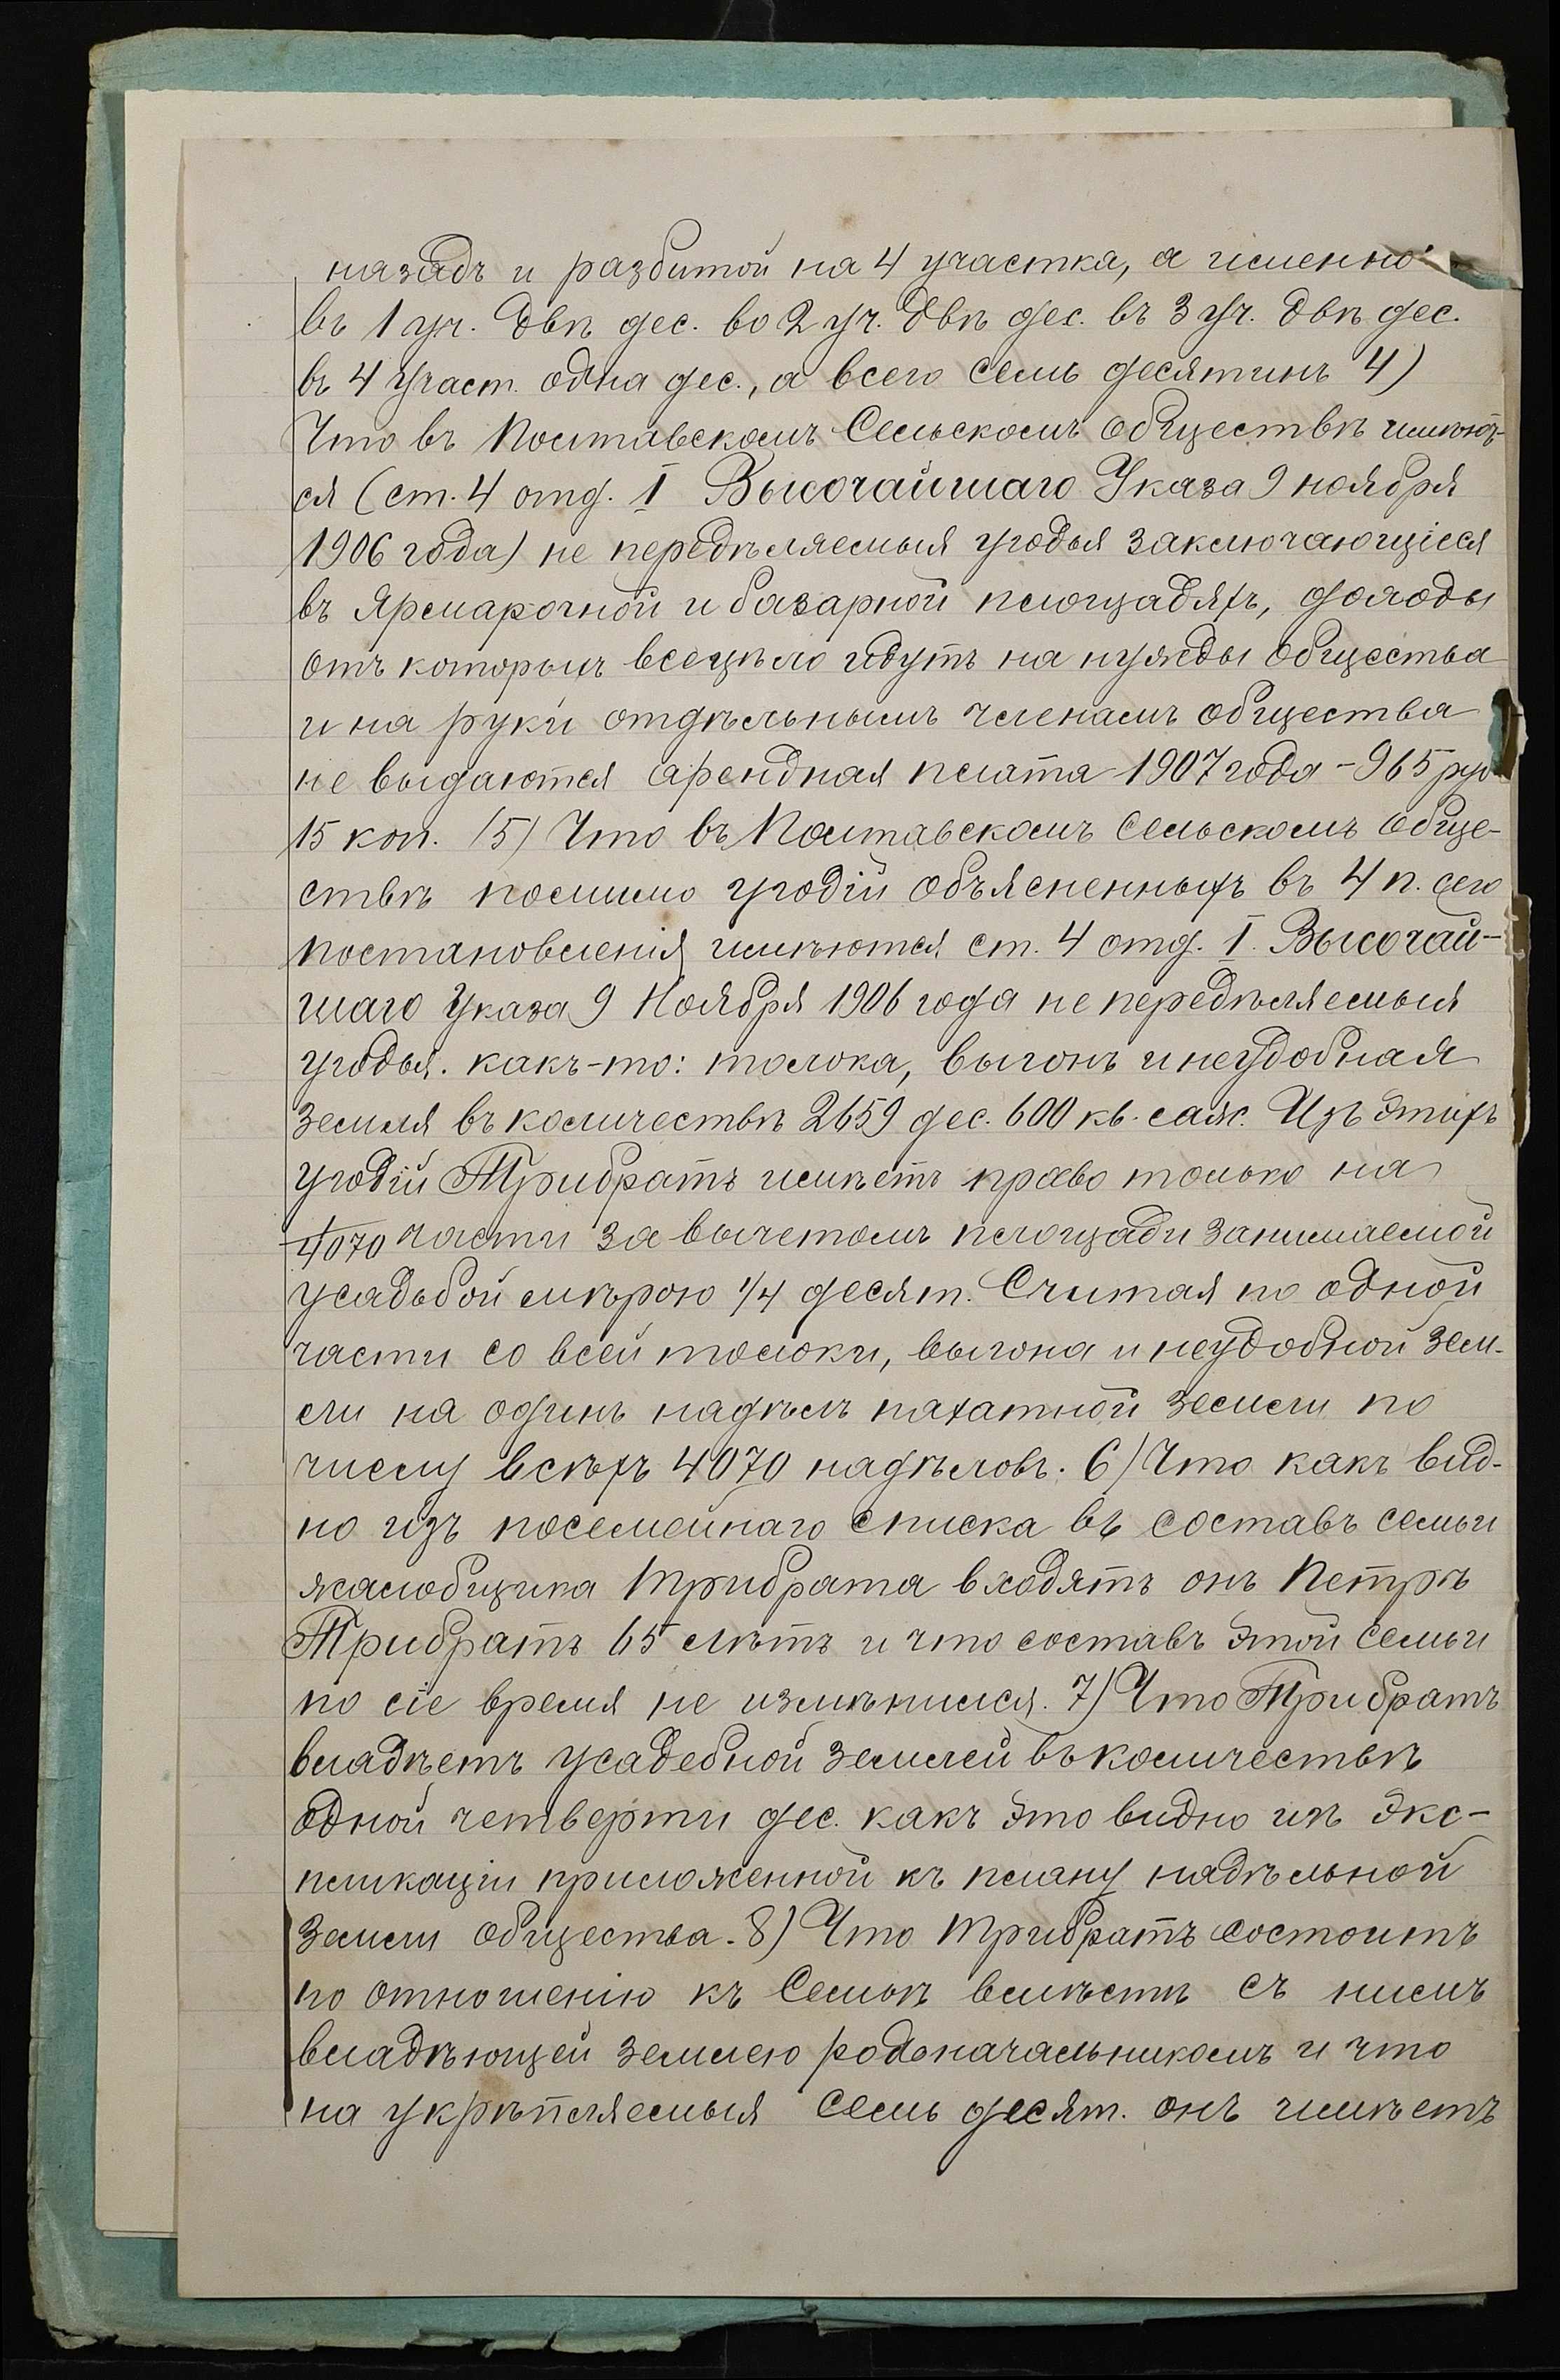 назадъ и разбитой на 4 участка, а именно:
въ 1 уч. двѣ дес. во 2 уч. двѣ дес. въ 3 уч. двѣ дес.
въ 4 участ. одна дес., а всего семь десятинъ 4)
Что въ Полтавскомъ Сельскомъ обществѣ имѣют-
ся (ст. 4 отд. I Высочайшаго Указа 9 ноября
1906 года) не передѣляемыя угодья заключающіеся
въ Ярмарочной и базарной площадяхъ, доходы
отъ которыхъ всецѣло идутъ на нужды общества
и на руки отдѣльнымъ членамъ общества
не выдаются арендная плата 1907 года – 965 руб
15 коп. 5) Что въ Полтавскомъ Сельскомъ обще-
ствѣ помимо угодій объясненныхъ въ 4 п. сего
постановленія имѣются ст. 4 отд. I. Высочай-
шаго Указа 9 Ноября 1906 года не передѣляемыя
угодья. какъ-то: толока, выгонъ и неудобная
земля въ количествѣ 2659 дес. 600 кв. саж. Изъ этихъ
угодій Трибратъ имѣетъ право только на
1/4070 части за вычетомъ площади занимаемой
усадьбой мѣрою 1/4 десят. Считая по одной
части со всей толоки, выгона и неудобной зем-
ли на одинъ надѣлъ пахатной земли по
числу всѣхъ 4070 надѣловъ. 6) Что какъ вид-
но изъ посемейнаго списка въ составъ семьи
жалобщика Трибрата входятъ онъ Петръ
Трибратъ 65 лѣтъ и что составъ этой семьи
по сіе время не измѣнился. 7) Что Трибратъ
владѣетъ усадебной землей въ количествѣ
одной четверти дес. какъ это видно изъ экс-
пликаціи приложенной къ плану надѣльной
земли общества. 8) Что Трибратъ состоитъ
по отношенію къ Семьѣ вмѣстѣ съ нимъ
владѣющей землею родоначальникомъ и что
на укрѣпляемыя семь десят. онъ имѣетъ